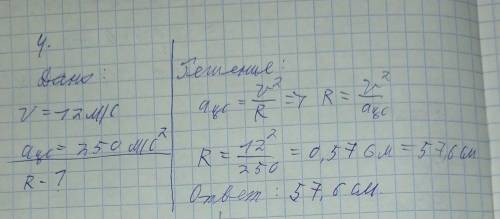 4.
Дано:
v = 12 м/с
aцс = 250 м/с²
R - ?
Решение:
aцс = v²/R => R = v²/aцс
R = 12²/250 = 0,576 м = 57,6 см
Ответ: 57,6 см.